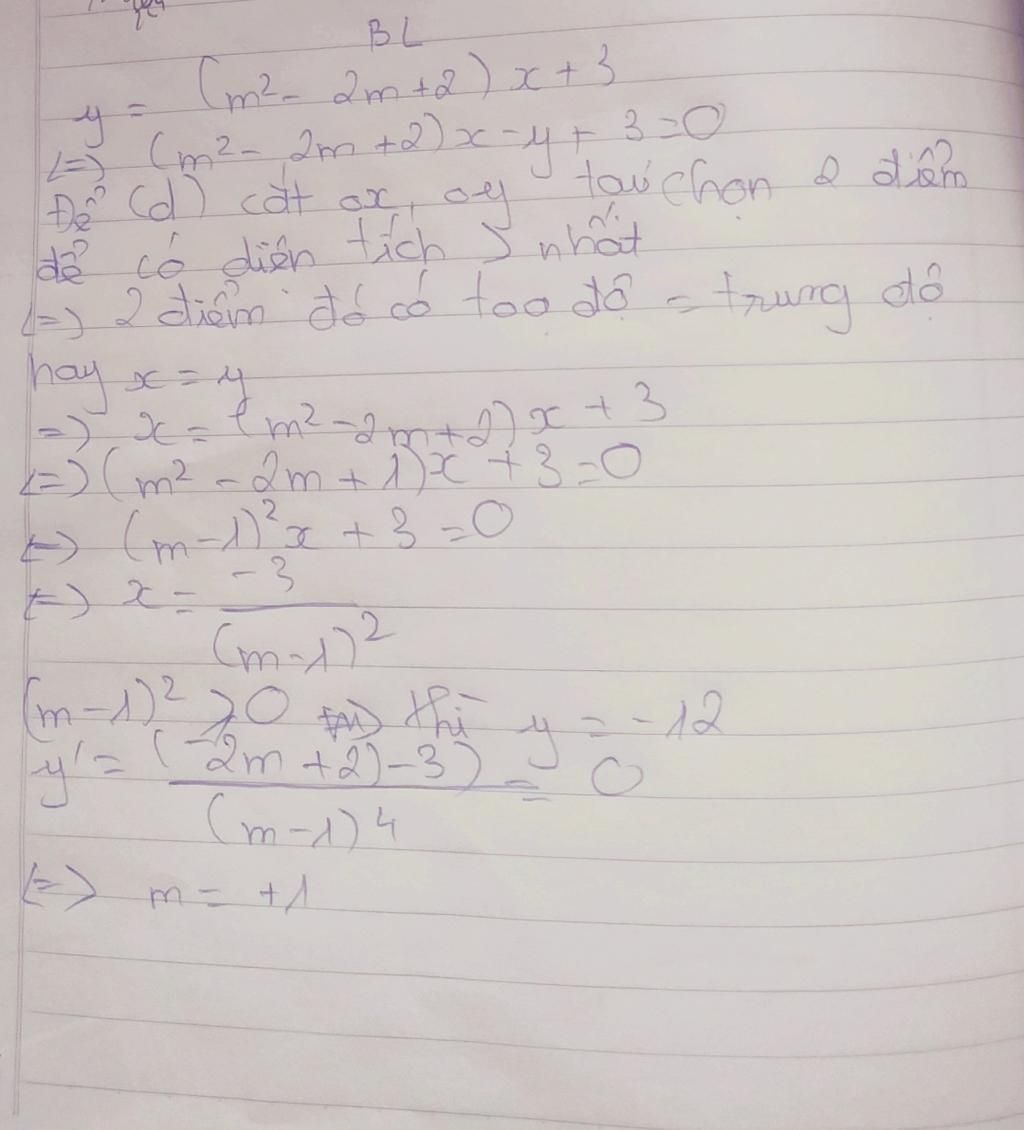 BL
y = (m² - 2m + 2) x + 3
<=> (m² - 2m + 2)x - y + 3 = 0
Để (d) cắt ox, oy tại chọn 2 điểm
để có diện tích nhất
<=> 2 điểm đó có toạ độ = trung độ
hay x = y
=> x = (m² - 2m + 2)x + 3
<=> (m² - 2m + 1)x + 3 = 0
<=> (m - 1)²x + 3 = 0
<=> x = -3 / (m - 1)²
(m - 1)² ≥ 0 thì y = -12
y' = (-2m + 2) - 3) / (m - 1)4 = 0
<=> m = +1